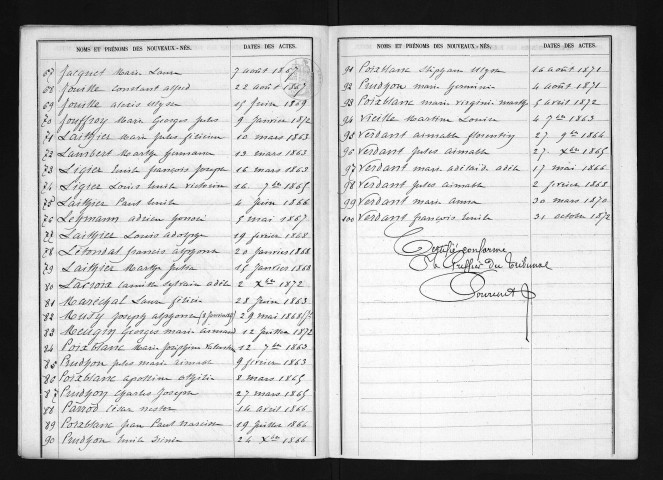 NOMS ET PRÉNOMS DES NOUVEAUX-NÉS. DATES DES ACTES.
67 Jacquet Marie Laure 7 août 1867
68 Jouille Constant alfred 22 août 1867
69 Jouille alexis Ulysse 15 juin 1869
70 Jouffroy Marie Georges Jules 9 janvier 1872
71 Laithier Marie Jules félicien 10 mars 1863
72 Lambert Marthe Germaine 13 mars 1863
73 Ligier Emile françois Joseph 16 mars 1863
74 Ligier Louis Emile victorin 16 7bre 1865
75 Laithier Paul Emile 4 juin 1866
76 Lehmann adrien 5 mai 1867
77 Laithier Louis adolphe 19 février 1868
78 Létondal francis alphonse 20 janvier 1868
79 Laithier Marthe 15 janvier 1868
80 Lacroix Camille Sylvain 2 Xbre 1872
81 Maréchal Laure félicie 28 juin 1863
82 Joseph alphonse 29 mai 1868
83 Georges marie armand 12 juillet 1872
84 Poixblanc Marie Joséphine 12 7bre 1863
85 Prudhon jules marie aimable 9 février 1863
86 Poixblanc apolline 8 mars 1865
87 Prudhon Charles Joseph 27 mars 1865
88 Parrod César nestor 14 avril 1866
89 Poixblanc Jean Paul narcisse 19 juillet 1866
90 Prudhon Emile 24 Xbre 1866
NOMS ET PRÉNOMS DES NOUVEAUX-NÉS. DATES DES ACTES.
91 Poixblanc Ulysse 16 août 1871
92 Prudhon marie Germinie 4 août 1871
93 Poixblanc marie virginie marthe 5 avril 1872
94 Vieille Martine Louise 4 7bre 1863
95 Verdant aimable florentin 27 9bre 1864
96 Verdant jules aimable 27 Xbre 1865
97 Verdant marie adélaïde 17 mai 1866
98 Verdant Jules aimable 2 février 1868
99 Verdant marie anna 30 mars 1870
100 Verdant françois Emile 31 octobre 1872
Certifié conforme
Le Greffier du Tribunal